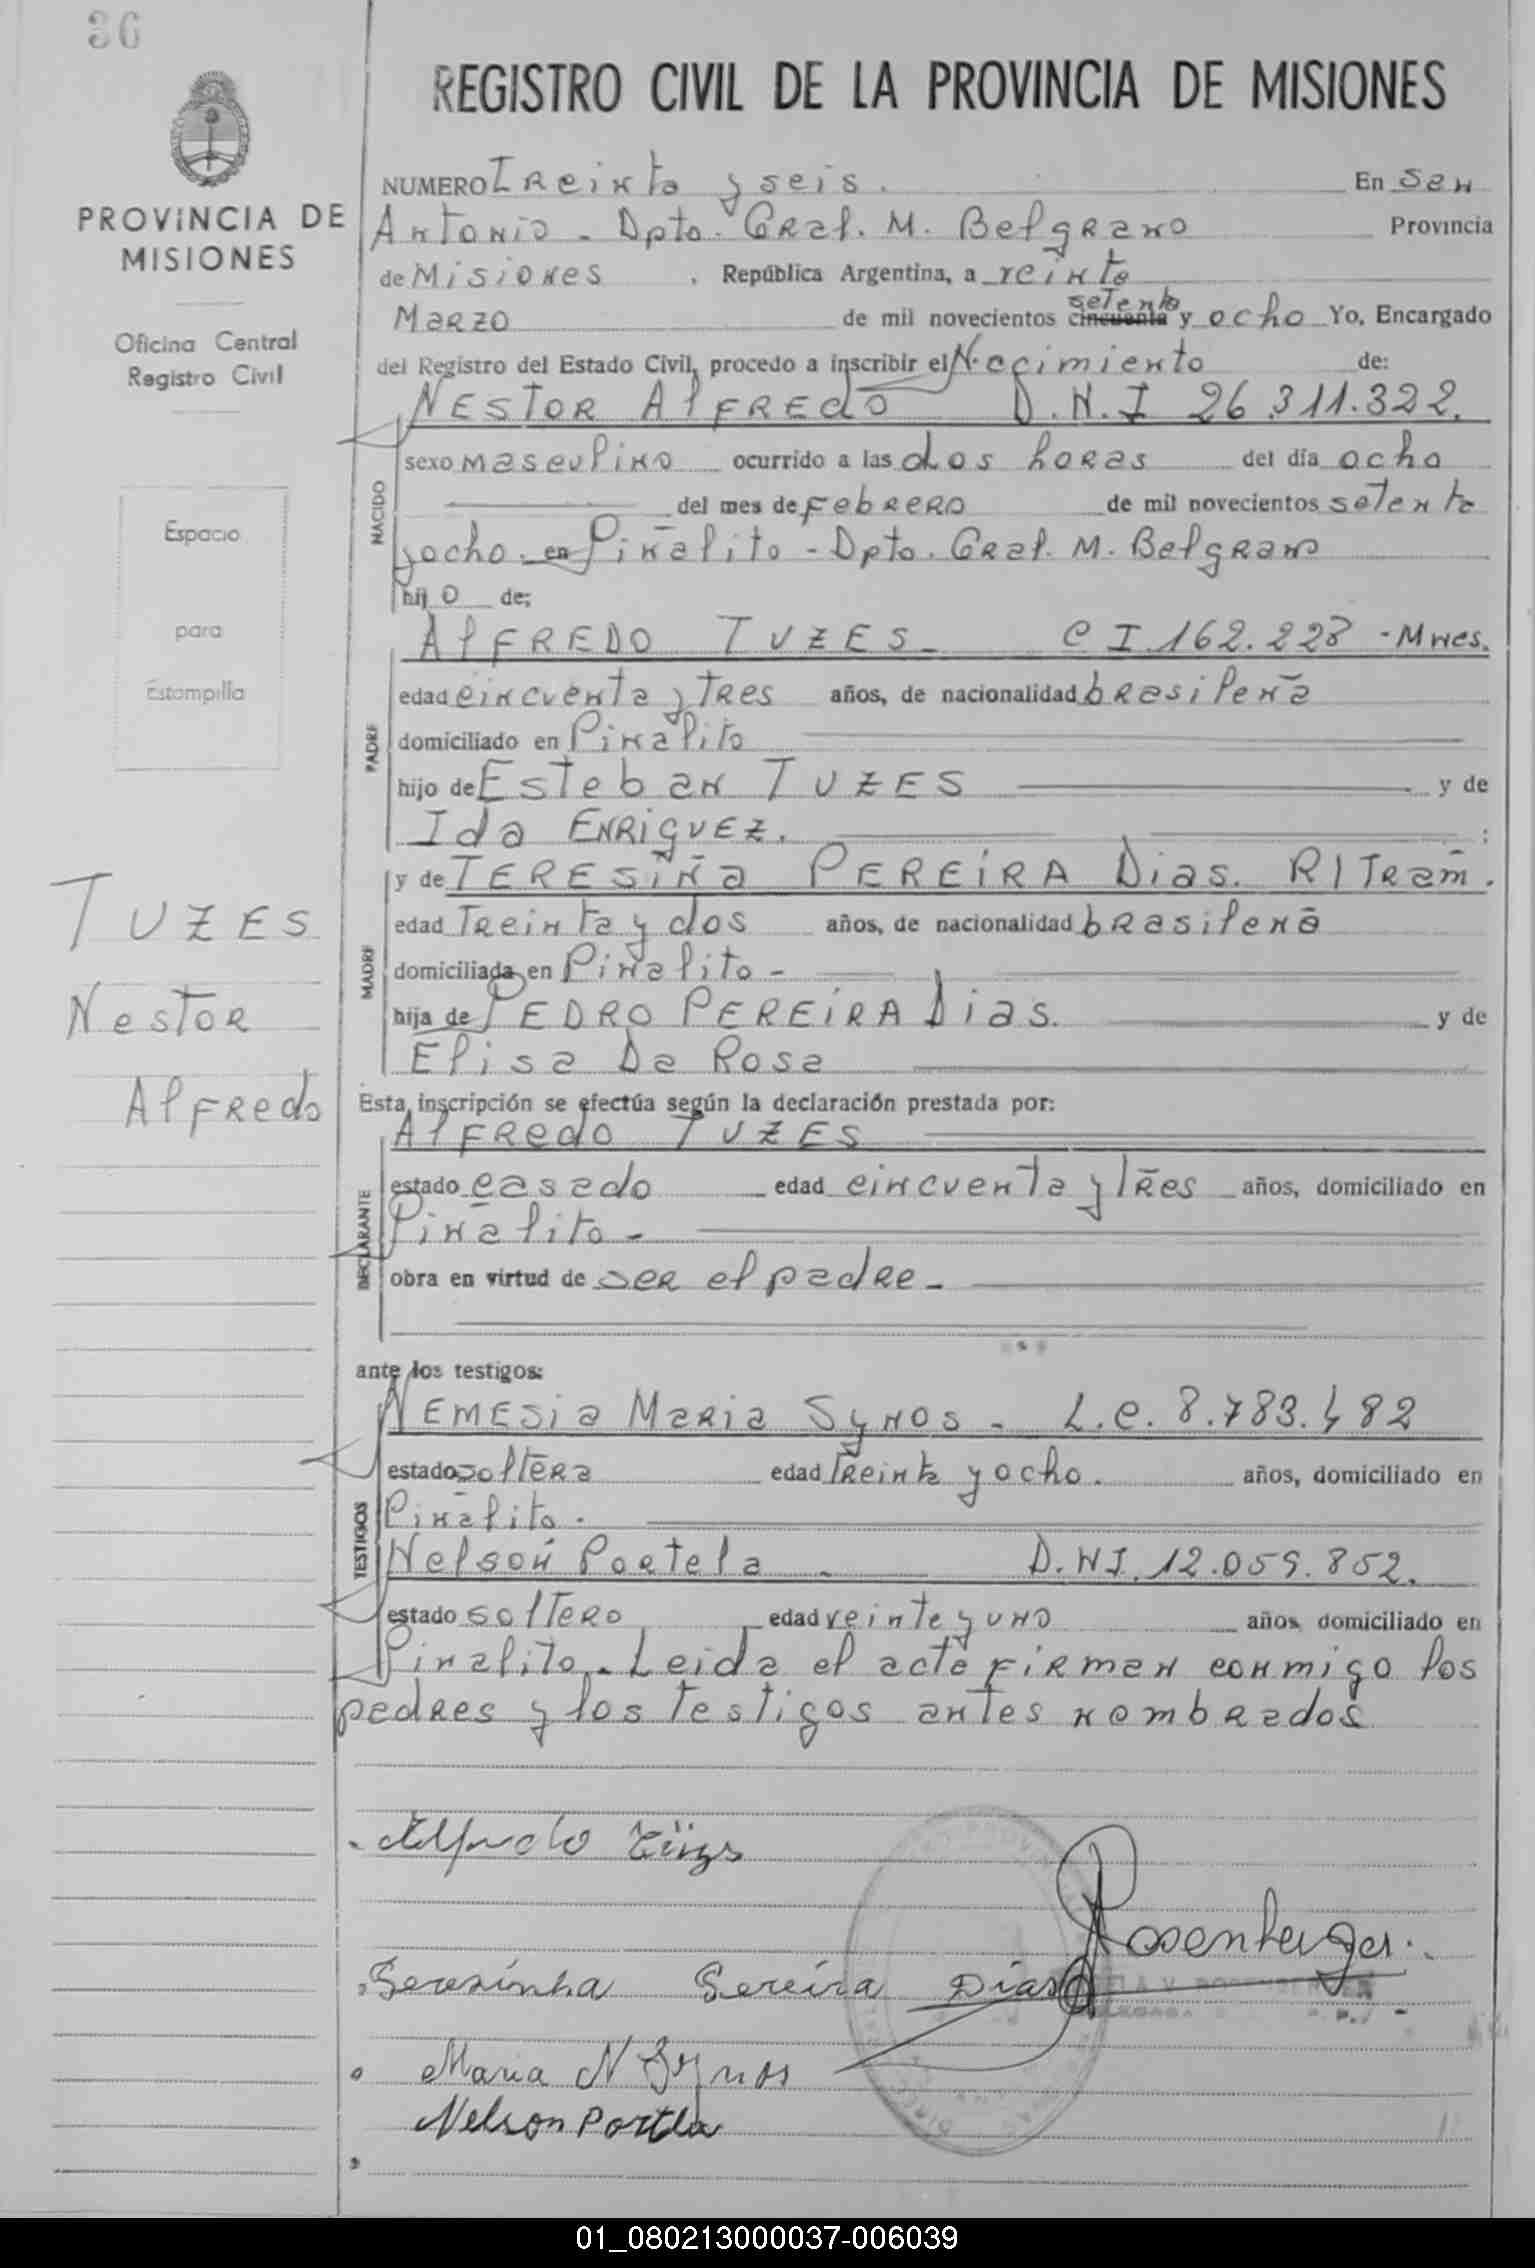 36
REGISTRO CIVIL DE LA PROVINCIA DE MISIONES
PROVINCIA DE
MISIONES
Oficina Central
Registro Civil
Espacio
para
Estampilla
TUZES
Nestor
Alfredo
NUMERO Treinta y seis. En San
Antonio - Dpto. Gral. M. Belgrano Provincia
de Misiones, República Argentina, a veinte
Marzo de mil novecientos cincuenta setenta y ocho Yo, Encargado
del Registro del Estado Civil, procedo a inscribir el Nacimiento de:
NESTOR AlFREdO D.N.I 26.311.322.
NACIDO
sexo masculino ocurrido a las dos horas del día ocho
del mes de Febrero de mil novecientos setenta
y ocho en Piñalito - Dpto. Gral. M. Belgrano
hijo de:
AlFREDO TUZES - C I. 162.228 - Mnes.
PADRE
edad cincuenta y tres años, de nacionalidad brasileña
domiciliado en Piñalito
hijo de Esteban TUZES y de
Ida ENRiquEZ. ;
y de TERESiña PEREiRA Dias. R/Tram.
MADRE
edad Treinta y dos años, de nacionalidad brasileña
domiciliada en Piñalito -
hija de PEDRO PEREiRA Dias. y de
Elisa Da Rosa
Esta inscripción se efectúa según la declaración prestada por:
AlFRedo TUZES
DECLARANTE
estado casado edad cincuenta y Tres años, domiciliado en
Piñalito -
obra en virtud de ser el padre -
ante los testigos:
NEMESia Maria Synos - L.C. 8.783.482
TESTIGOS
estado soltera edad Treinta y ocho. años, domiciliado en
Piñalito.
Nelson Portela - D.NI. 12.059.852.
estado soltero edad veinte y uno años, domiciliado en
Piñalito - Leida el acta firman conmigo los
padres y los testigos antes nombrados
Alfredo Tüzes
Teresinha Pereira Dias
Rosenberger
Maria N Synos
Nelson Portela
01_080213000037-006039